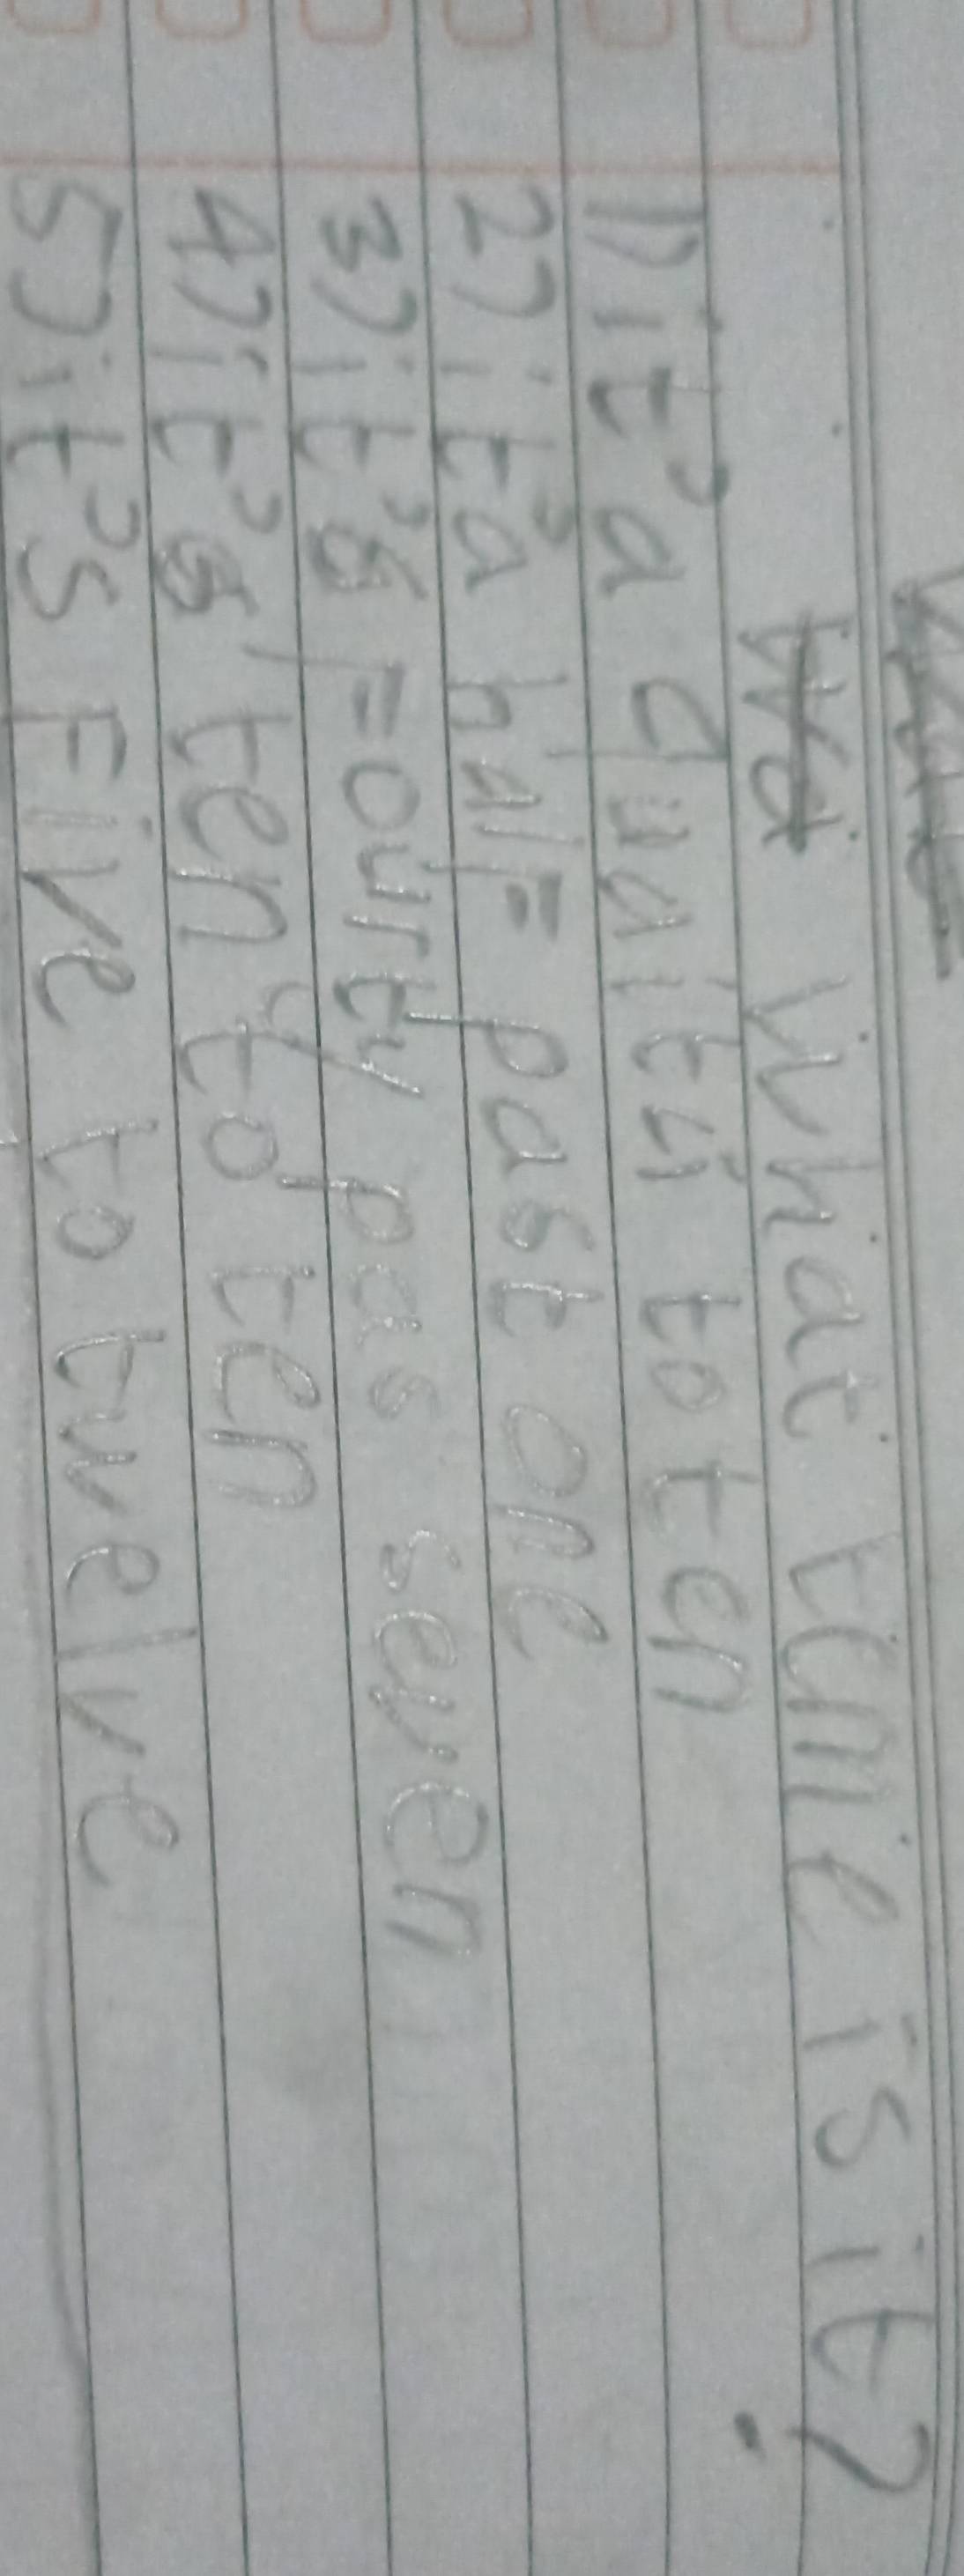 What time is it?
1) it's a quaiteh to ten
2) it's a half past one
3) it's fourty pas seven
4) it's ten to ten
5) it's Five to twelve